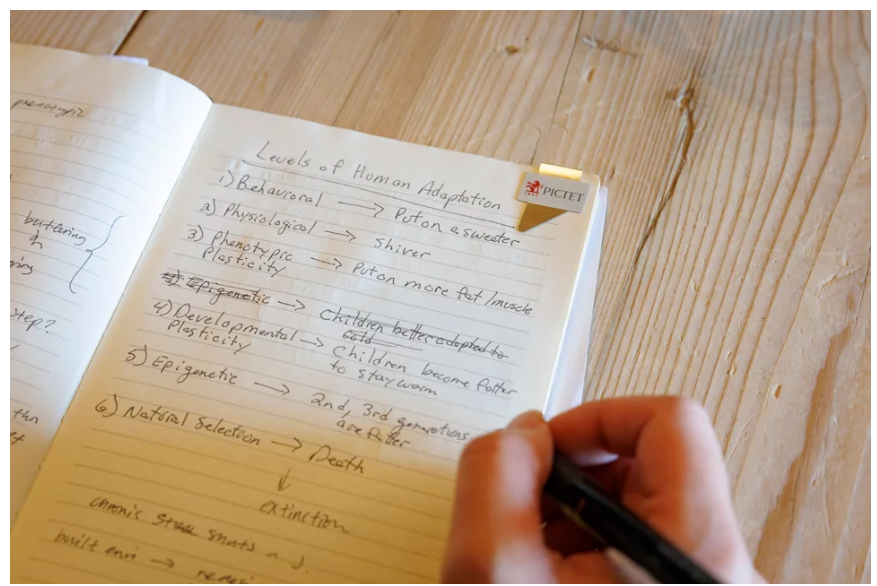 phenotypic
buffering
step?
Levels of Human Adaptation
PICTET
1) Behavioral → Put on a sweater
2) Physiological → Shiver
3) Phenotypic → Put on more fat/muscle
Plasticity
4) Epigenetic → Children better adapted to
cold
4) Developmental → Children become fatter
Plasticity to stay warm
5) Epigenetic → 2nd, 3rd generations
are fatter
6) Natural Selection → Death
↓
extinction
chronic
built envi →